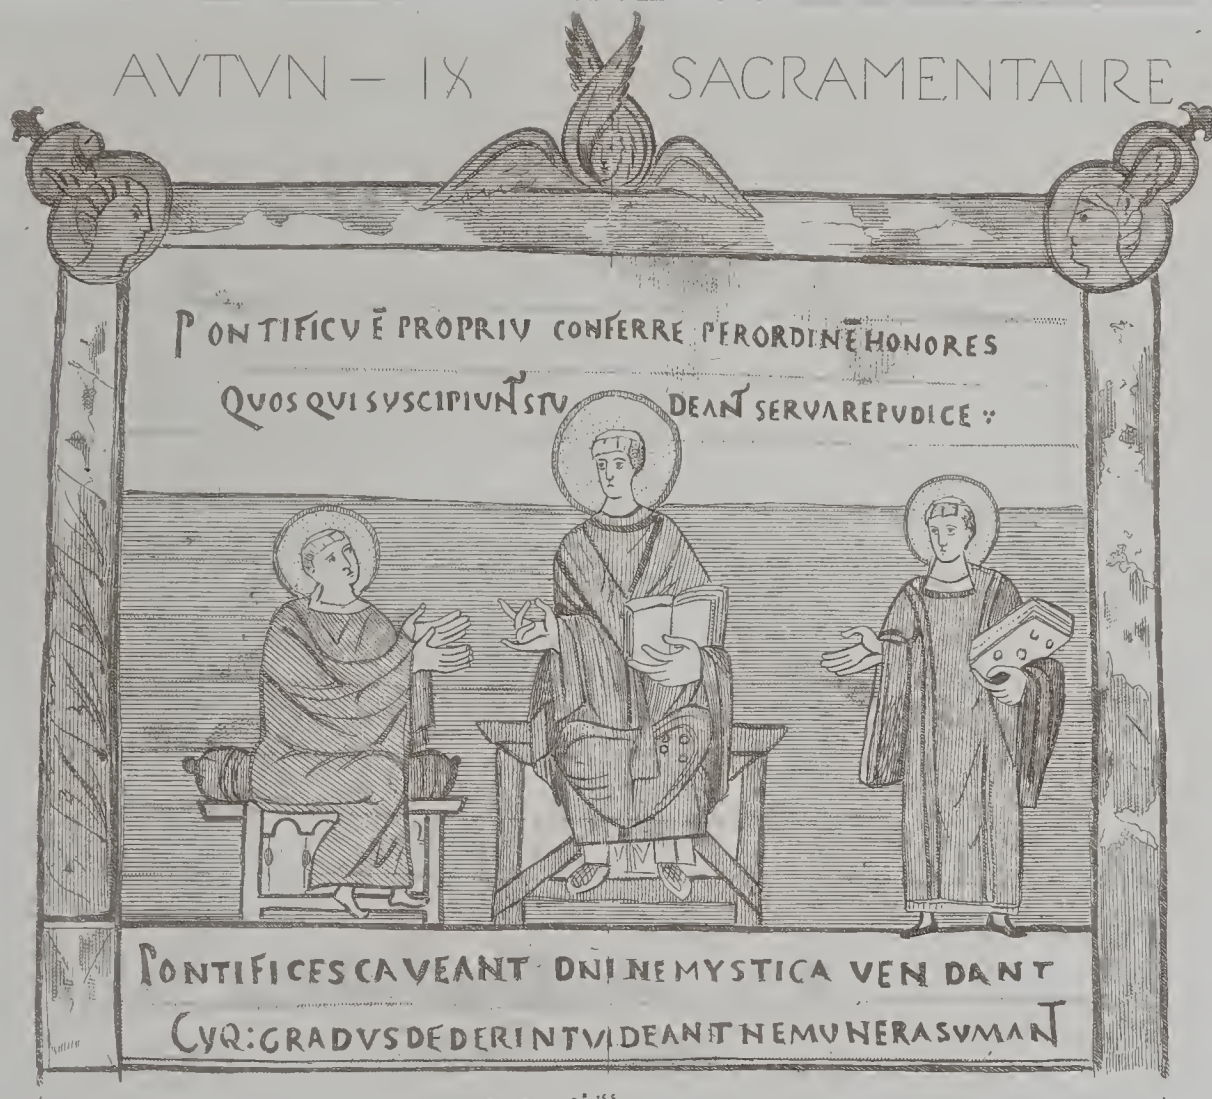 AVTVN – IX SACRAMENTAIRE
PONTIFICV Ē PROPRIV CONFERRE PERORDINĒ HONORES
QVOS QVI SVSCIPIVNT STV DEANT SERVARE PVDICE
PONTIFICES CAVEANT DNI NE MYSTICA VENDANT
CVQ: GRADVS DEDERINT VIDEANT NE MVNERA SVMANT